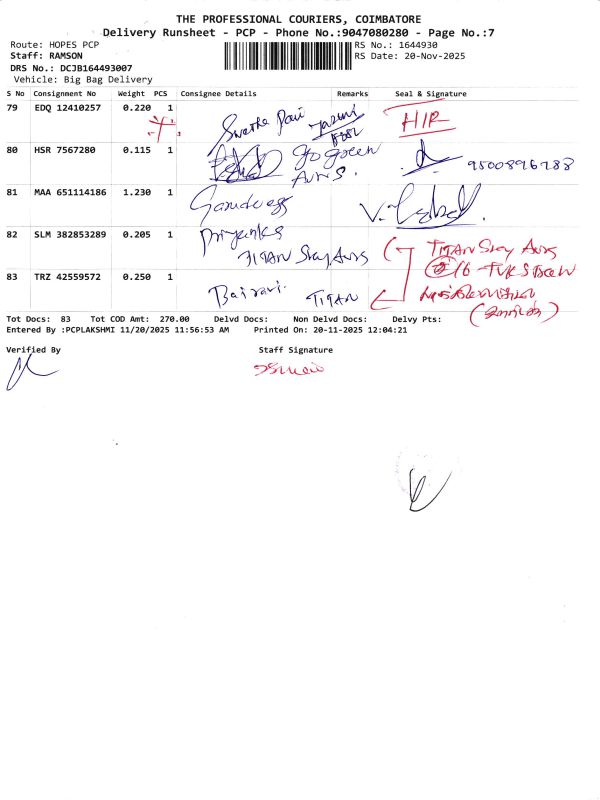 THE PROFESSIONAL COURIERS, COIMBATORE
Delivery Runsheet - PCP - Phone No.:9047080280 - Page No.:7
Route: HOPES PCP
RS No.: 1644930
Staff: RAMSON
RS Date: 20-Nov-2025
DRS No.: DCJB164493007
Vehicle: Big Bag Delivery
S No Consignment No Weight PCS Consignee Details Remarks Seal & Signature
79 EDQ 12410257 0.220 1 Swetha H/P
80 HSR 7567280 0.115 1 go green
Avns. 9500896788
81 MAA 651114186 1.230 1
82 SLM 382853289 0.205 1 Priyanka
TITAN Skay, Avns TITAN Skay Avns
83 TRZ 42559572 0.250 1 Bairavi. TITAN
Tot Docs: 83 Tot COD Amt: 270.00 Delvd Docs: Non Delvd Docs: Delvy Pts:
Entered By :PCPLAKSHMI 11/20/2025 11:56:53 AM Printed On: 20-11-2025 12:04:21
Verified By Staff Signature